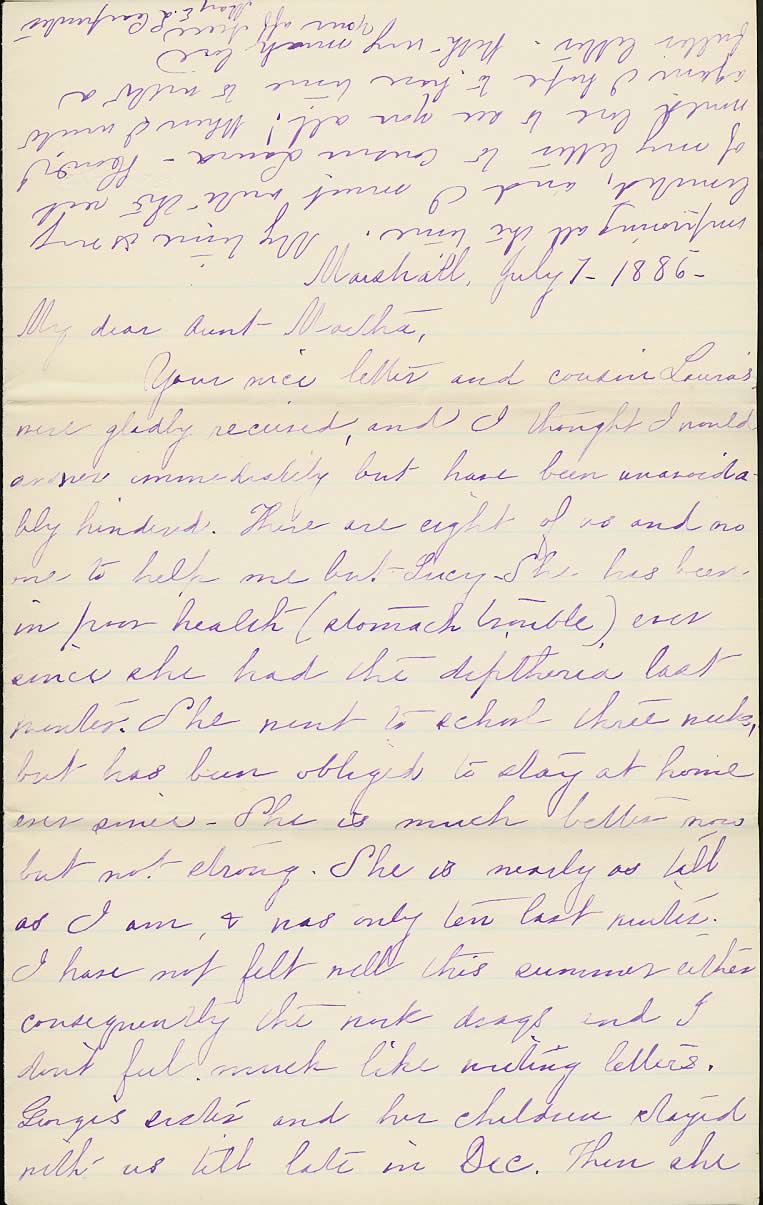 Marshall, July 1 - 1885 -
My dear Aunt Martha,
Your nice letter and cousin Laura's
were gladly received, and I thought I would
answer immediately but have been unavoida-
bly hindered. There are eight of us and no
one to help me but Lucy. She has been
in poor health (stomach trouble) ever
since she had the diptheria last
winter. She went to school three weeks,
but has been obliged to stay at home
ever since - She is much better now
but not strong. She is nearly as tall
as I am, & was only ten last winter.
I have not felt well this summer either
consequently the work drags and I
don't feel much like writing letters.
Georges sister and her children stayed
with us till late in Dec. Then she
improving all the time. My time is very
limited, and I must write the rest
of my letter to cousin Laura - How I
would love to see you all! When I write
again I hope to have time to write a
fuller letter. With very much love
your aff niece
Mary E. L. Carpenter